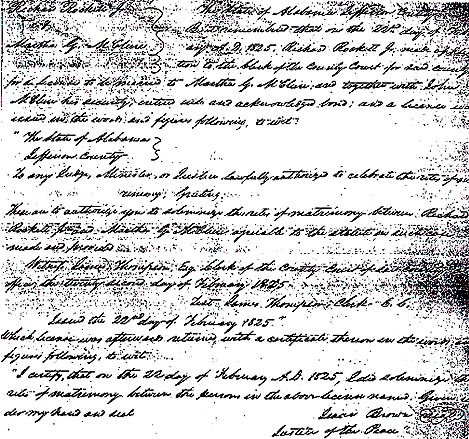 Richard Rockett Jr The State of Alabama Jefferson County
To Be it remembered that on the 22nd day of
Martha G. McClure A.D. 1825, Richard Rockett Jr made applica
tion to the Clerk of the County Court for said county
for a licence to be married to Martha G. McClure, and together with John
McClure his security, entered into and acknowledged bond; and a licence
issued in the words and figures following, to wit:
"The State of Alabama
Jefferson County
To any Judge, Minister, or Justice lawfully authorized to celebrate the rites of
rimony, Greeting.
These are to authorize you to solemnize the rites of matrimony between Richard
Rockett and Martha G. McClure agreeable to the statute in such case
made and provided
Witness James Thompson, Esq. Clerk of the County Court of said county at
office the twenty second day of February 1825.
Test. James Thompson, Clerk C. C.
Issued the 22nd day of February 1825"
Which licence was afterwards returned, with a certificate thereon in the words and
figures following, to wit:
"I certify, that on the 22 day of February A.D. 1825, I did solemnize the
rites of matrimony between the persons in the above licence named. Given
der my hand and seal Brown
Justice of the Peace